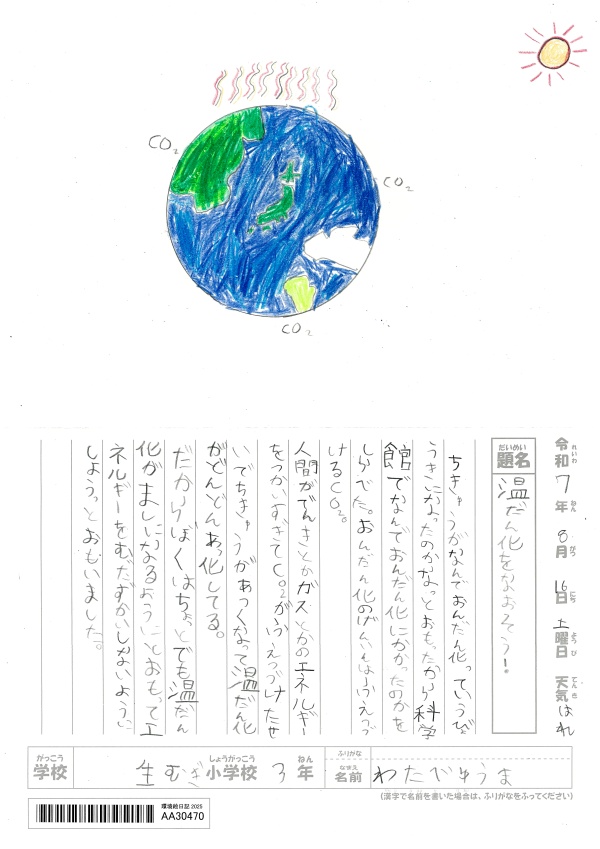 CO₂
CO₂
CO₂
令和7年8月16日土曜日 天気はれ
れいわ ねん がつ にち ようび てんき
だいめい
題名 温だん化をなおそう!
ちきゅうがなんでおんだん化っていうびょ
うきになったのかなっとおもったから科学
館でなんでおんだん化にかかったのかを
しらべた。おんだん化のげんいんはふえつづ
けるCO₂。
人間がでんきとかガスとかのエネルギー
をつかいすぎてCO₂がふえつづけたせ
いでちきゅうがあつくなって温だん化
がどんどんあっ化してる。
だからぼくはちょっとでも温だん
化がましになるようにとおもってエ
ネルギーをむだずかいしないように
しようっとおもいました。
がっこう しょうがっこう ねん ふりがな
学校 生むぎ小学校 3年 なまえ 名前 わたべゆうま
(漢字で名前を書いた場合は、ふりがなをふってください)
環境絵日記 2025
AA30470